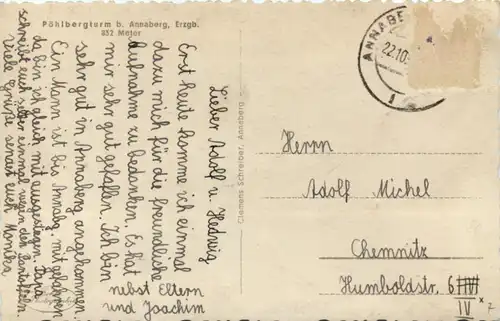 Pöhlbergturm b. Annaberg, Erzgb.
832 Meter
Lieber Adolf u. Hedwig
Erst heute komme ich einmal
dazu mich für die freundliche
Aufnahme zu bedanken. Es hat
mir sehr gut gefallen. Ich bin
sehr gut in Annaberg angekommen.
Ein Mann ist bis Annabg. mit gefahren
da bin ich gleich mit ausgestiegen. Papa
schreibt euch selber einmal wegen den Pantoffeln.
Viele Grüße sendet euch Monika
nebst Eltern
und Joachim
Clemens Schreiber, Annaberg
ANNABE
22.10.
Herrn
Adolf Michel
Chemnitz
Humboldstr. 6
IV
x
7